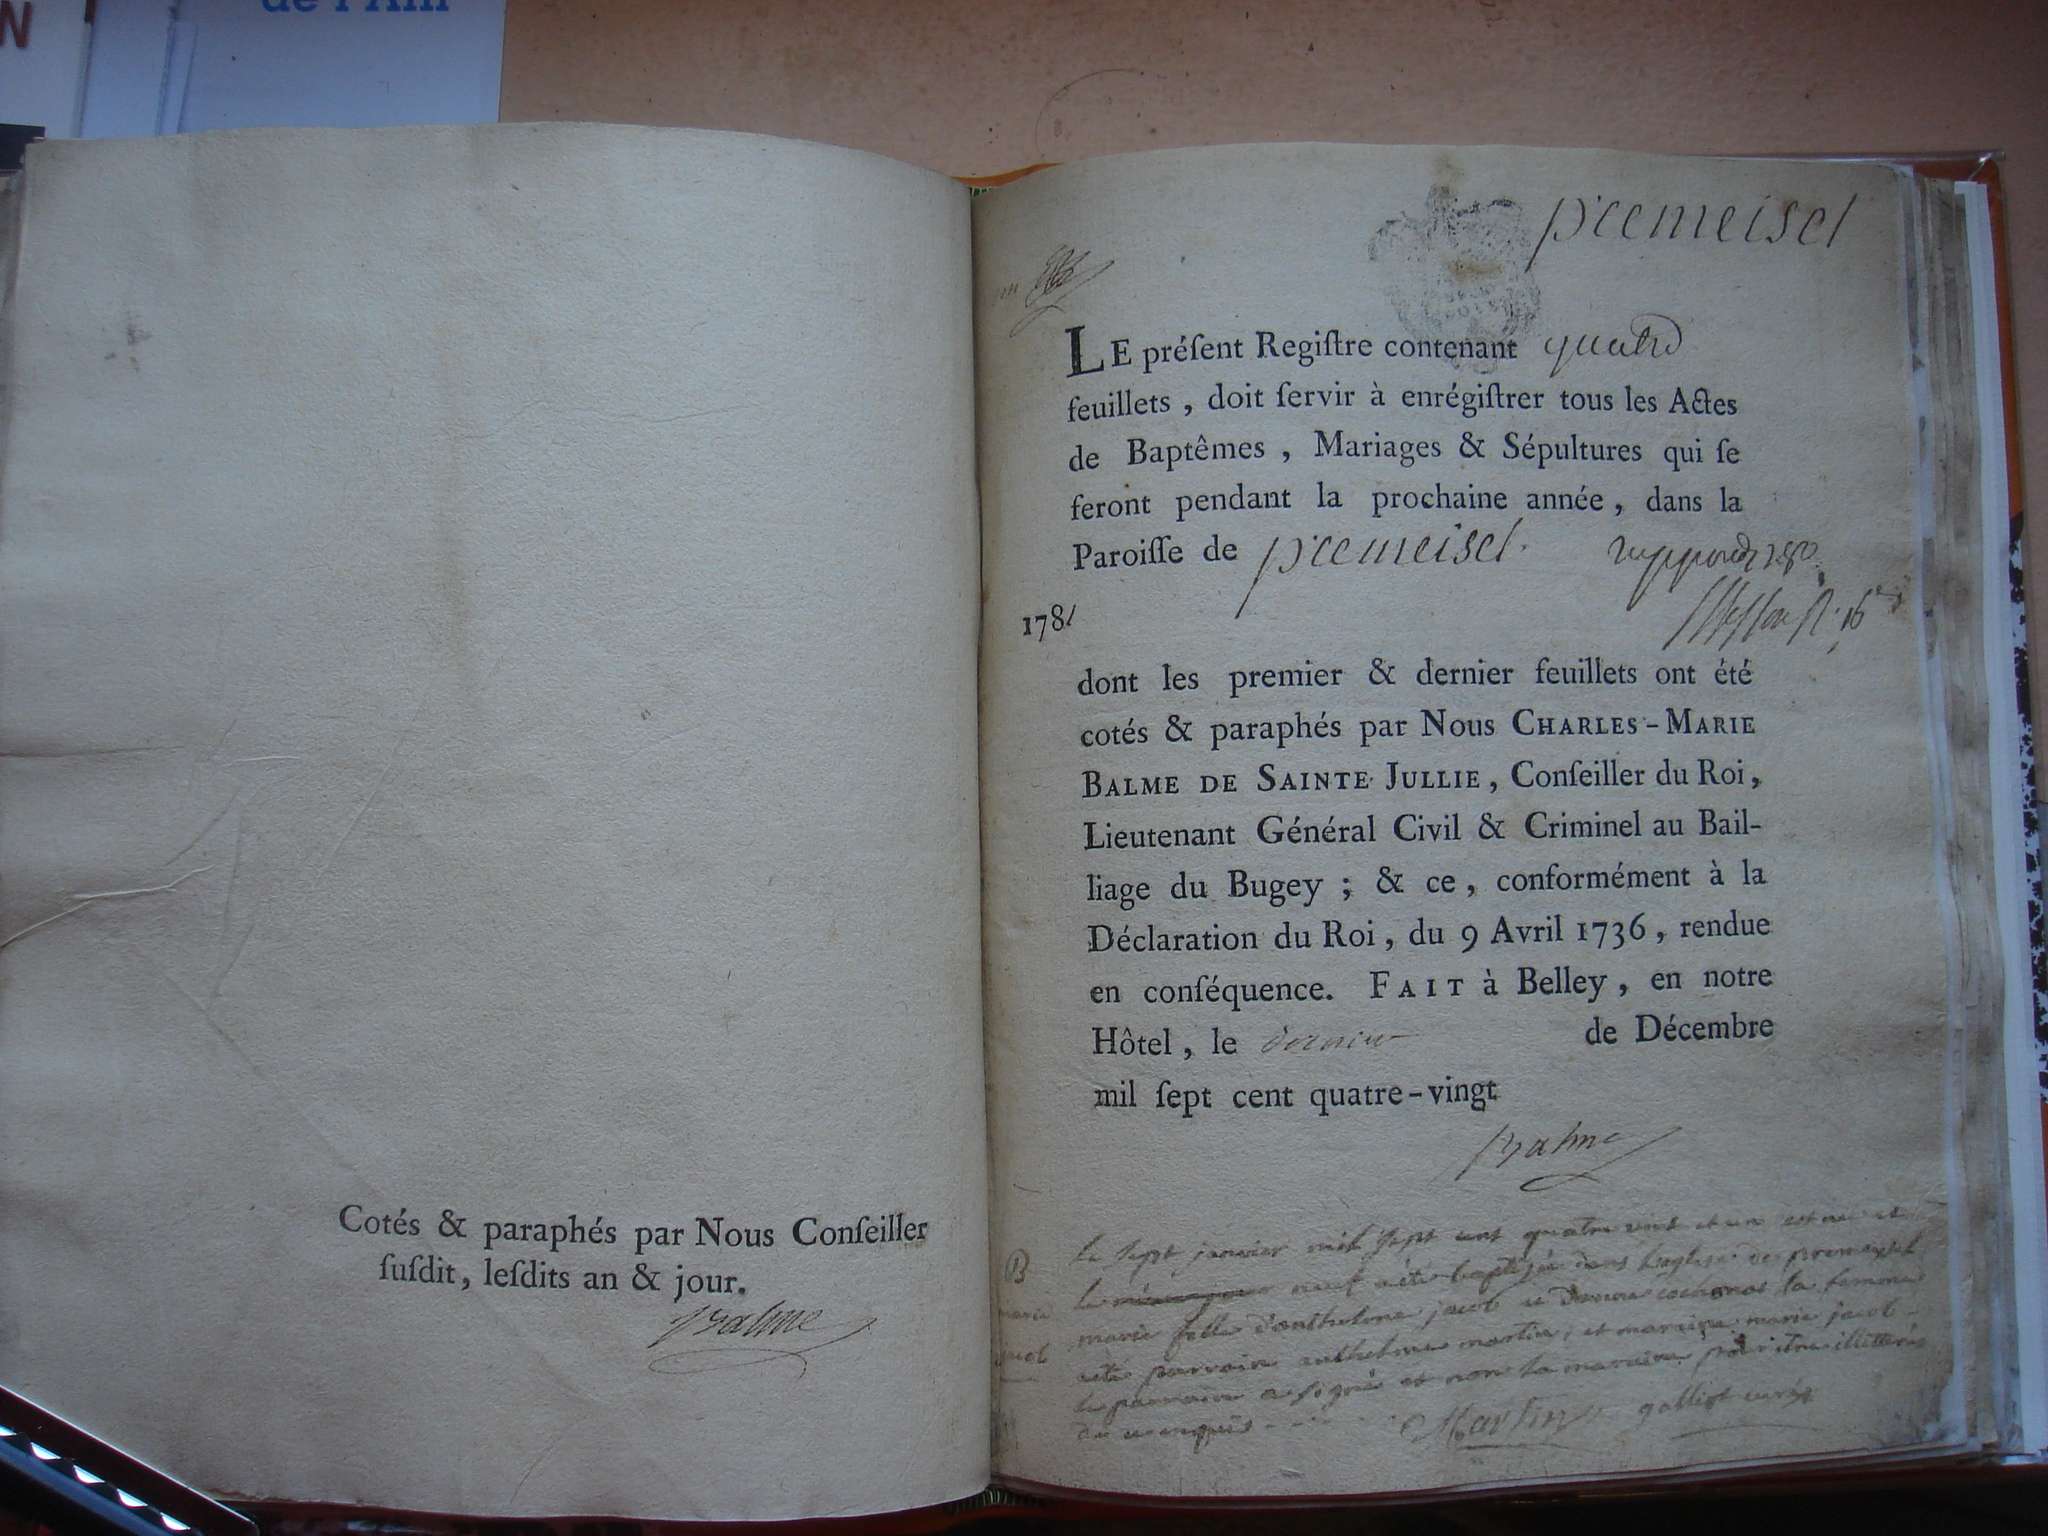 N
de l'Ain
Cotés & paraphés par Nous Conſeiller
ſuſdit, leſdits an & jour.
Balme
premeisel
LE préſent Regiſtre contenant quatre
feuillets, doit ſervir à enrégiſtrer tous les Actes
de Baptêmes, Mariages & Sépultures qui ſe
feront pendant la prochaine année, dans la
Paroiſſe de premeisel.
1781
dont les premier & dernier feuillets ont été
cotés & paraphés par Nous CHARLES-MARIE
BALME DE SAINTE JULLIE, Conſeiller du Roi,
Lieutenant Général Civil & Criminel au Bail-
liage du Bugey ; & ce, conformément à la
Déclaration du Roi, du 9 Avril 1736, rendue
en conſéquence. FAIT à Belley, en notre
Hôtel, le dernier de Décembre
mil ſept cent quatre-vingt
Balme
B
marie
jacob
le sept janvier mil sept cent quatre vint et un est née et
le neuf a été baptisée dans l'eglise de premeisel
marie fille d'anthelme jacob et la femme
parrain anthelme martin, et maraine marie jacob
le parrain a signé et non la maraine pour être illitterée
de ce enquis
Martin galliot curé